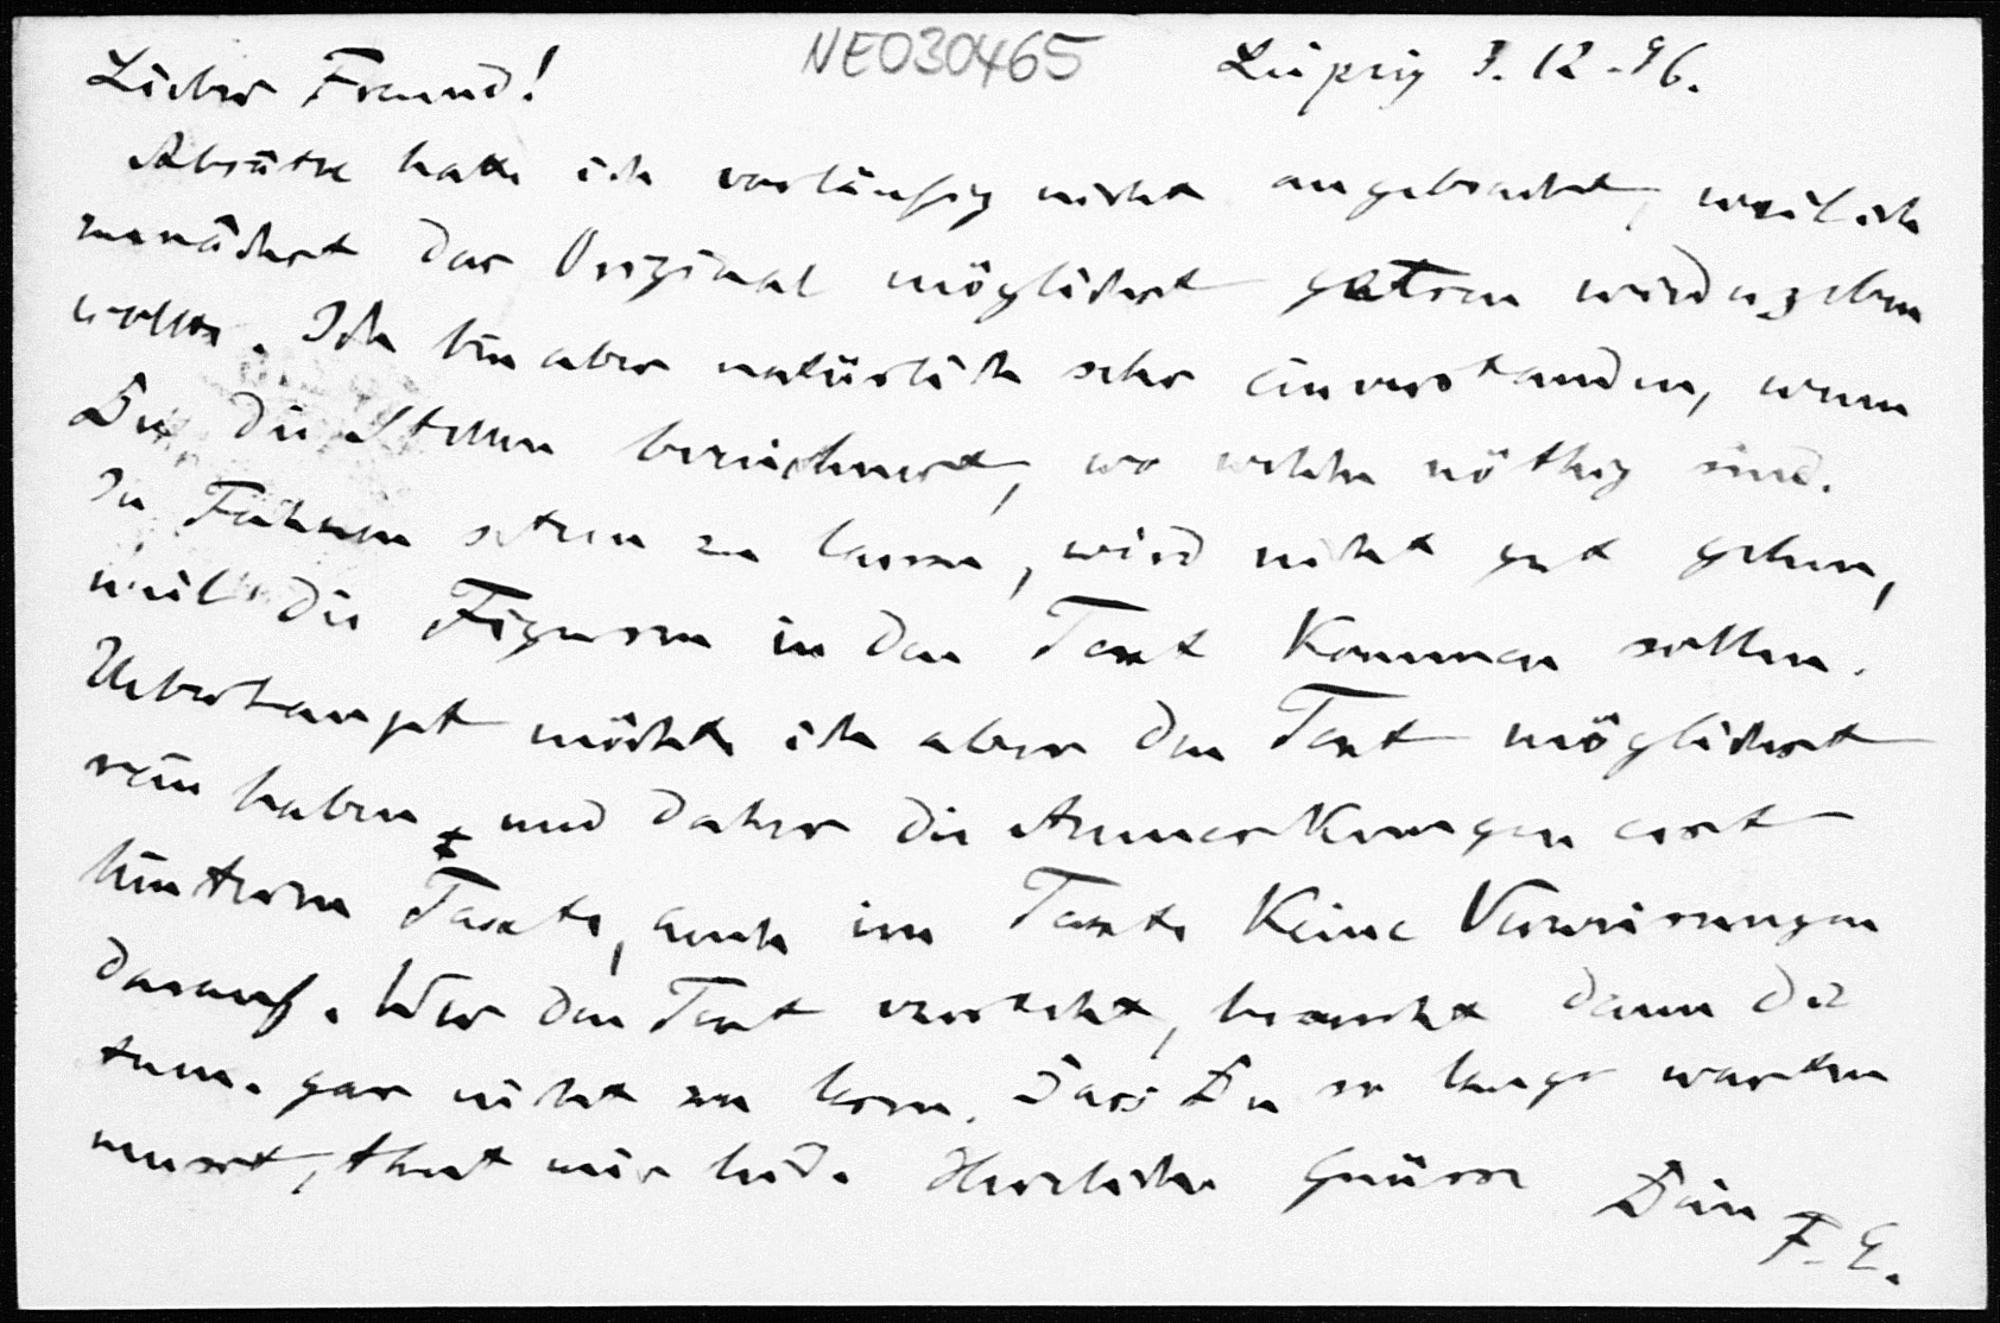 NE030465
Leipzig 3. 12. 96.
Lieber Freund!
Absätze hatte ich vorläufig nicht angebracht, weil ich
zunächst das Original möglichst getreu wiedergeben
wollte. Ich bin aber natürlich sehr einverstanden, wenn
Du die Stellen bezeichnest, wo welche nöthig sind.
In Fahnen setzen zu lassen, wird nicht gut gehen,
weil die Figuren in den Text kommen sollen.
Ueberhaupt möchte ich aber den Text möglichst
rein haben und daher die Anmerkungen erst
hinterm Texte, auch im Texte keine Verweisungen
darauf. Wer den Text versteht, braucht dann die
gar nicht zu lesen. Dass Du so lange warten
musst, thut mir leid. Herzliche Grüsse Dein
F. E.